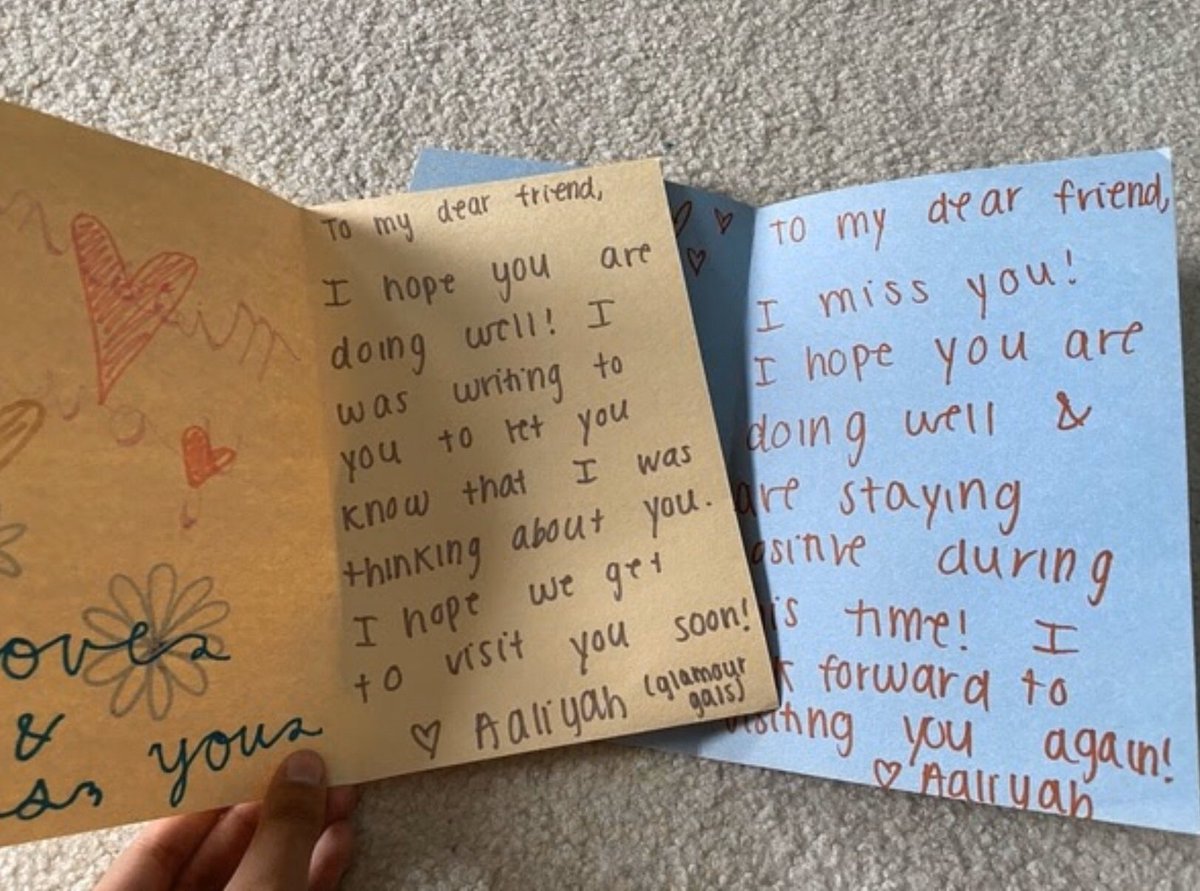 To my dear friend,
I hope you are
doing well! I
was writing to
you to let you
know that I was
thinking about you.
I hope we get
to visit you soon!
♡ Aaliyah (glamour
gals)
To my dear friend,
I miss you!
I hope you are
doing well &
are staying
ositive during
is time! I
k forward to
visiting you again!
♡ Aaliyah
oves
&
you